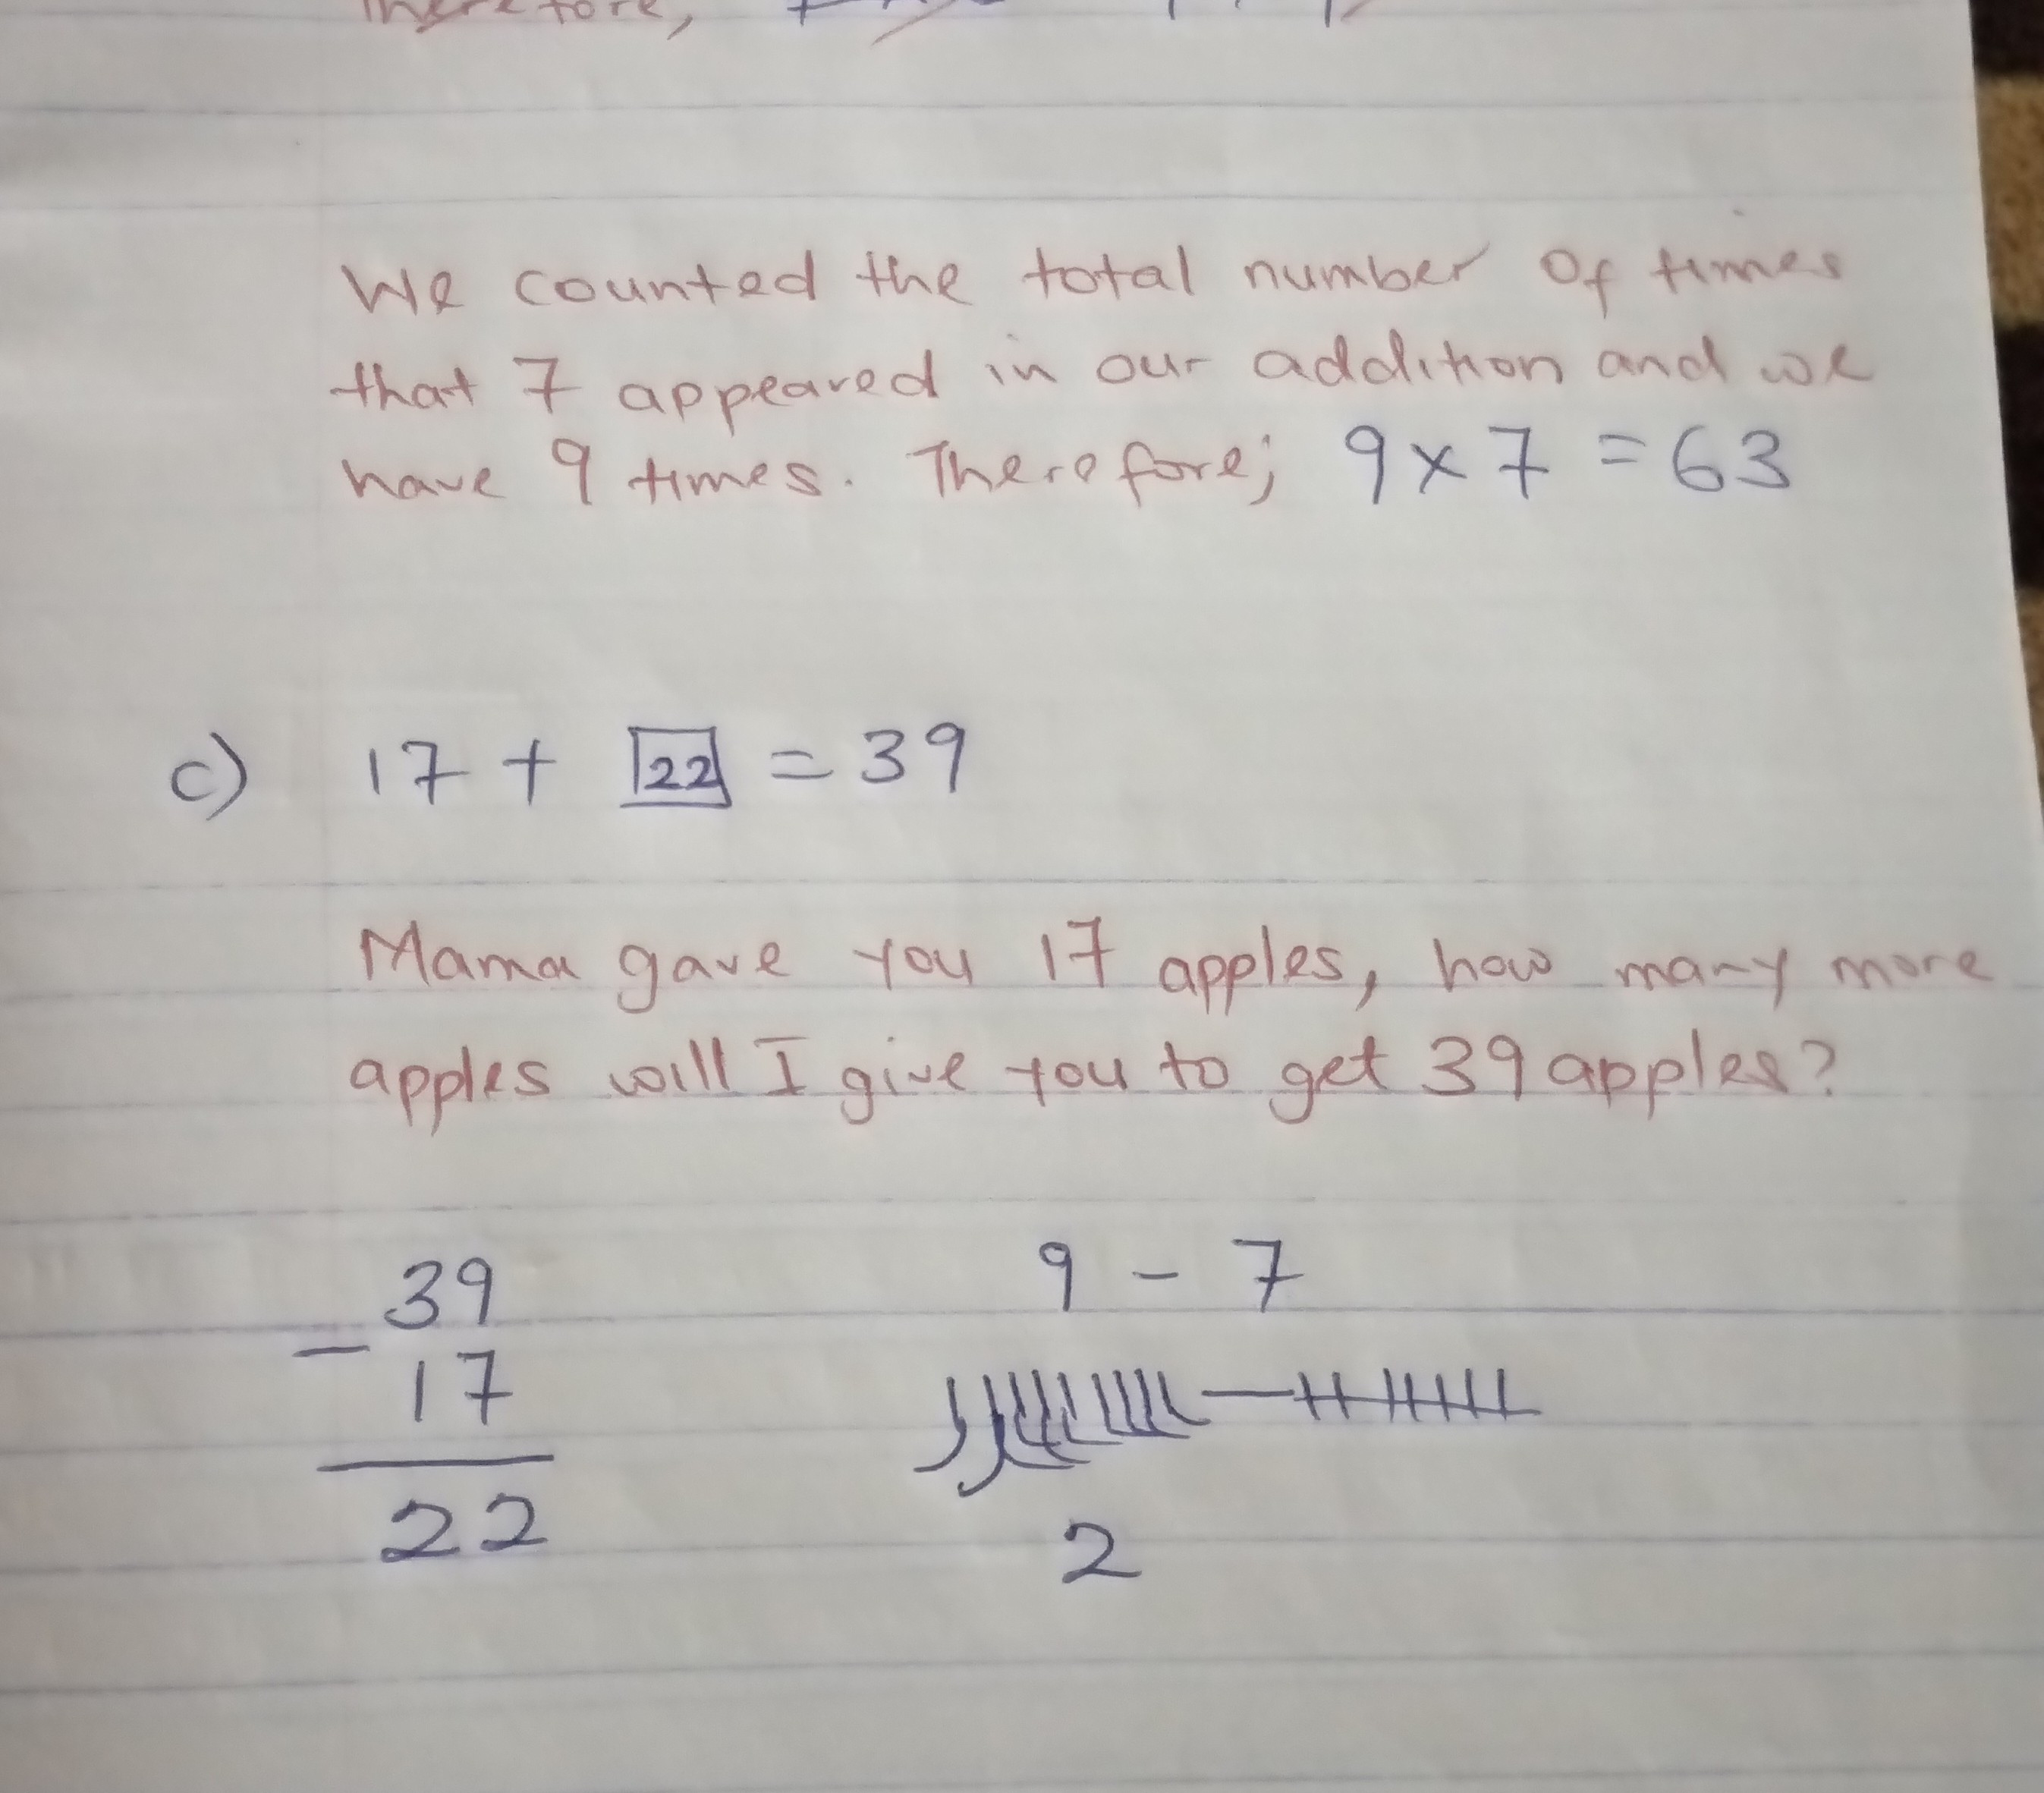 Therefore,
We counted the total number of times
that 7 appeared in our addition and we
have 9 times. Therefore; 9 x 7 = 63
c) 17 + 22 = 39
Mama gave you 17 apples, how many more
apples will I give you to get 39 apples?
39
- 17
22
9 - 7
2